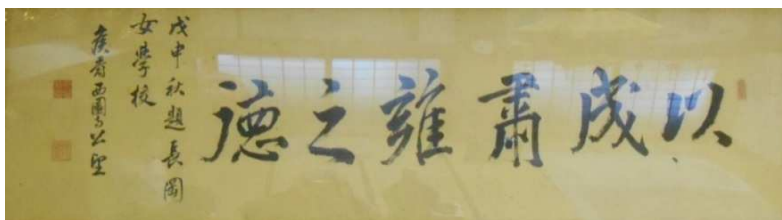 以成肅雍之德
戊申秋題長岡
女學校
侯爵西園寺公望